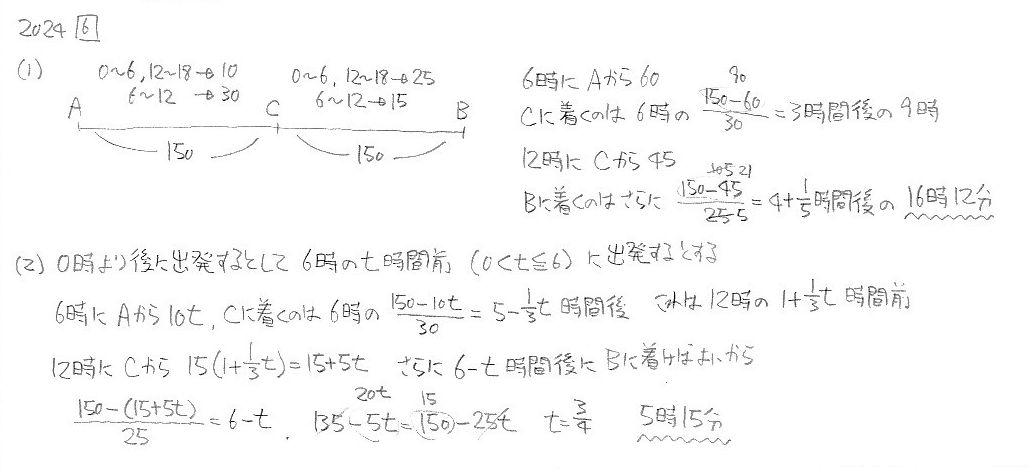 2024 6
(1)
0~6, 12~18→10
6~12 →30
0~6, 12~18→25
6~12→15
A C B
150 150
6時にAから60
Cに着くのは 6時の (150-60)/30 = 3時間後の 9時
90
12時に Cから 45
Bに着くのはさらに (150-45)/25 = 4+1/5時間後の 16時12分
105 21
5
(2) 0時より後に出発するとして 6時のt時間前 (0<t≦6) に出発するとする
6時に Aから10t, Cに着くのは 6時の (150-10t)/30 = 5-1/3t 時間後 これは 12時の 1+1/3t 時間前
12時に Cから 15(1+1/3t)=15+5t さらに 6-t 時間後に Bに着けばよいから
(150-(15+5t))/25 = 6-t. 135-5t=150-25t t=3/4 5時15分
20t 15